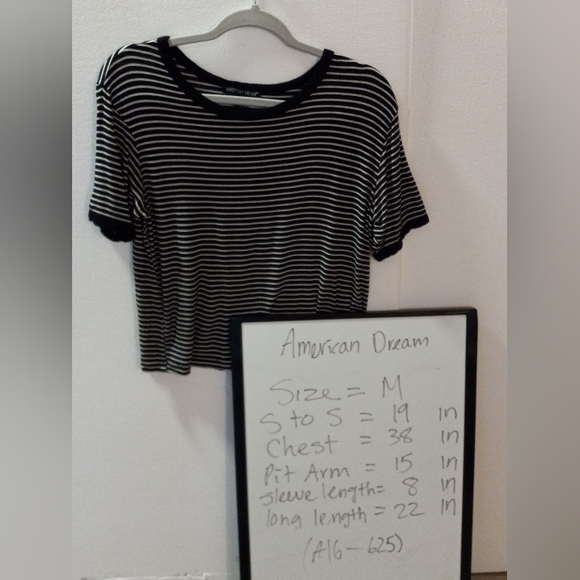 American Dream
Size = M
S to S = 19 in
Chest = 38 in
Pit Arm = 15 in
sleeve length = 8 in
long length = 22 in
(A16-625)